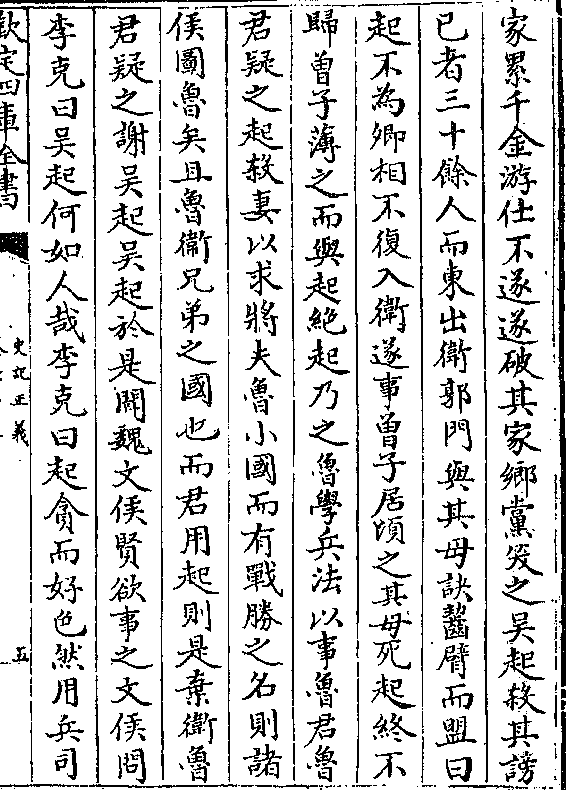 家累千金游仕不遂遂破其家鄉黨笑之吳起殺其謗
已者三十餘人而東出衛郭門與其母訣齧臂而盟曰
起不為卿相不復入衛遂事曾子居頃之其母死起終不
歸曾子薄之而與起絶起乃之魯學兵法以事魯君魯
君疑之起殺妻以求將夫魯小國而有戰勝之名則諸
侯圖魯矣且魯衛兄弟之國也而君用起則是棄衛魯
君疑之謝吳起吳起於是聞魏文侯賢欲事之文侯問
李克曰吳起何如人哉李克曰起貪而好色然用兵司
欽定四庫全書
史記正義
五